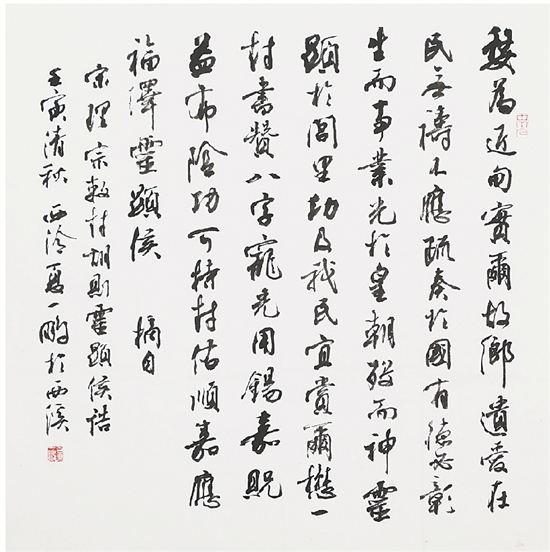 婺為近甸實爾故鄉遺愛在
民無禱不應疏奏於國有德必彰
生而事業光於皇朝歿而神靈
顯於閭里功及我民宜賞爾懋一
封書贊八字寵光用錫嘉貺
益布陰功可特封佑順嘉應
福澤靈顯侯 摘自
宋理宗敕封胡則靈顯侯誥
壬寅清秋西泠夏一鵬於西溪